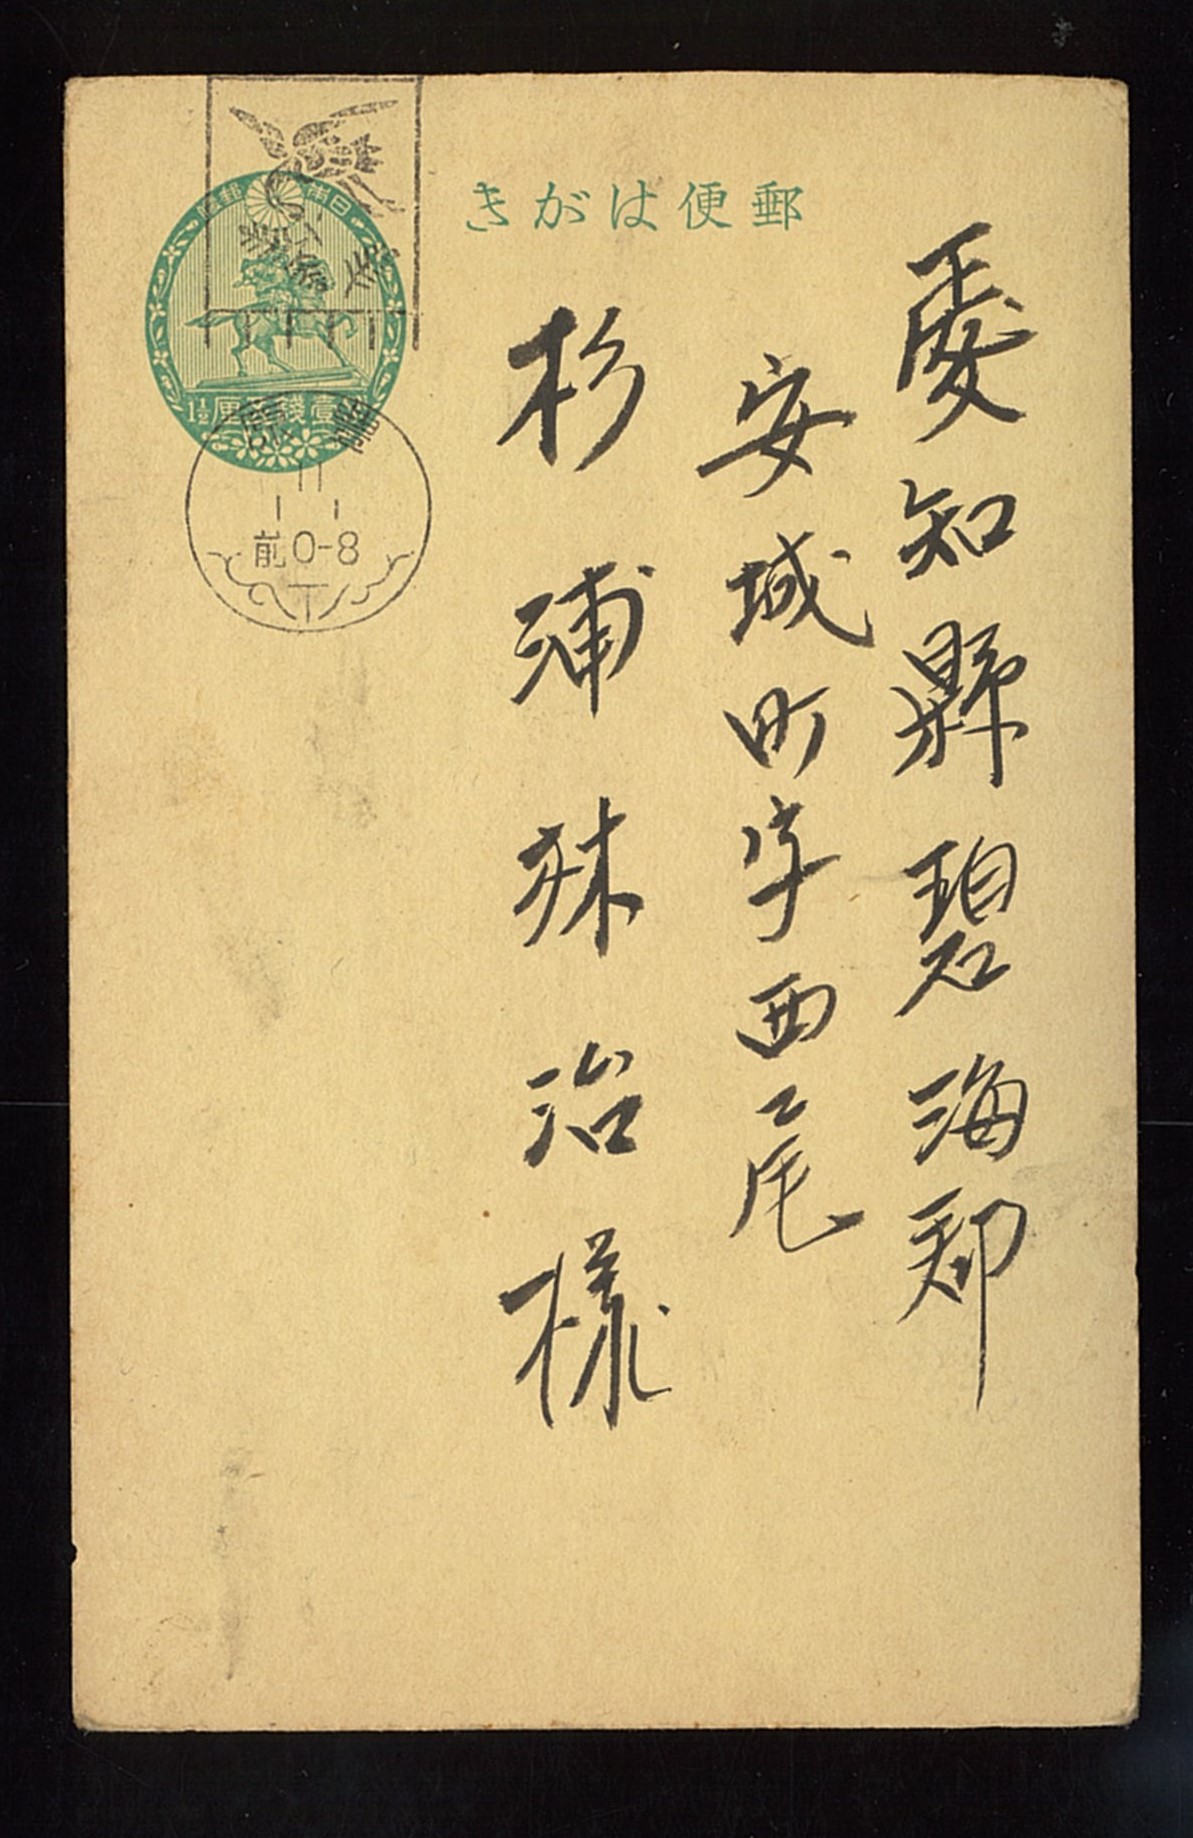 郵便はがき
愛知縣碧海郡
安城町字西尾
杉浦妹治様
日本郵便
壹錢五厘
1½
11
1 1
前0-8